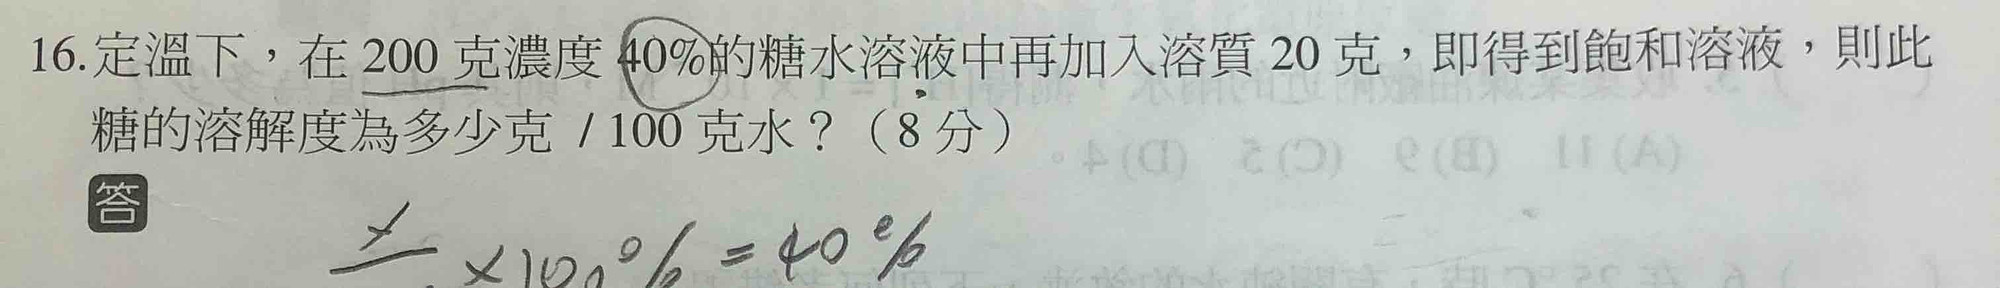 16.定溫下，在 200 克濃度 40%的糖水溶液中再加入溶質 20 克，即得到飽和溶液，則此
糖的溶解度為多少克 / 100 克水？（8 分）
答
x
×100% = 40%